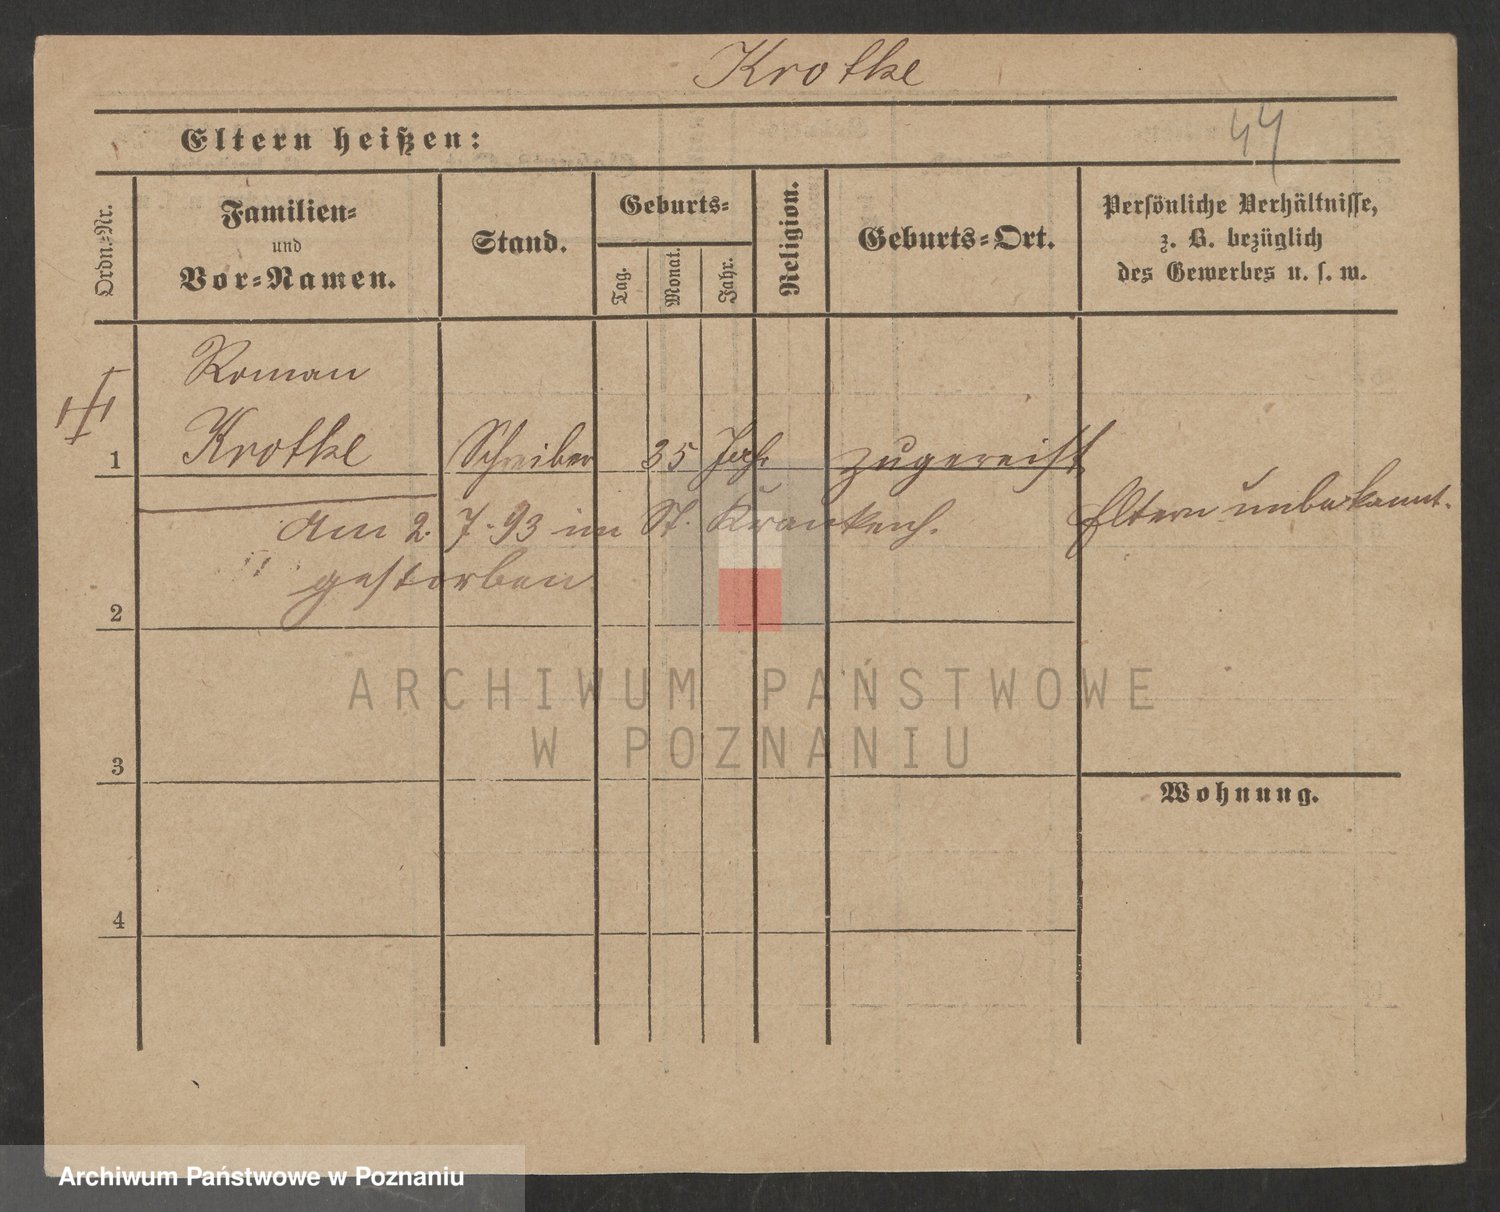 Krotke
44
Eltern heißen:
Ordn.=Nr.
Familien=
und
Vor=Namen.
Stand.
Geburts=
Tag.
Monat.
Jahr.
Religion.
Geburts=Ort.
Persönliche Verhältnisse,
z. B. bezüglich
des Gewerbes u. s. w.
Roman
1 Krotke Schreiber 35 Jahr zugereist
Eltern unbekannt.
Am 2. 7. 93 im St. Krankenh.
gestorben
2
ARCHIWUM PAŃSTWOWE
W POZNANIU
3
Wohnung.
4
Archiwum Państwowe w Poznaniu